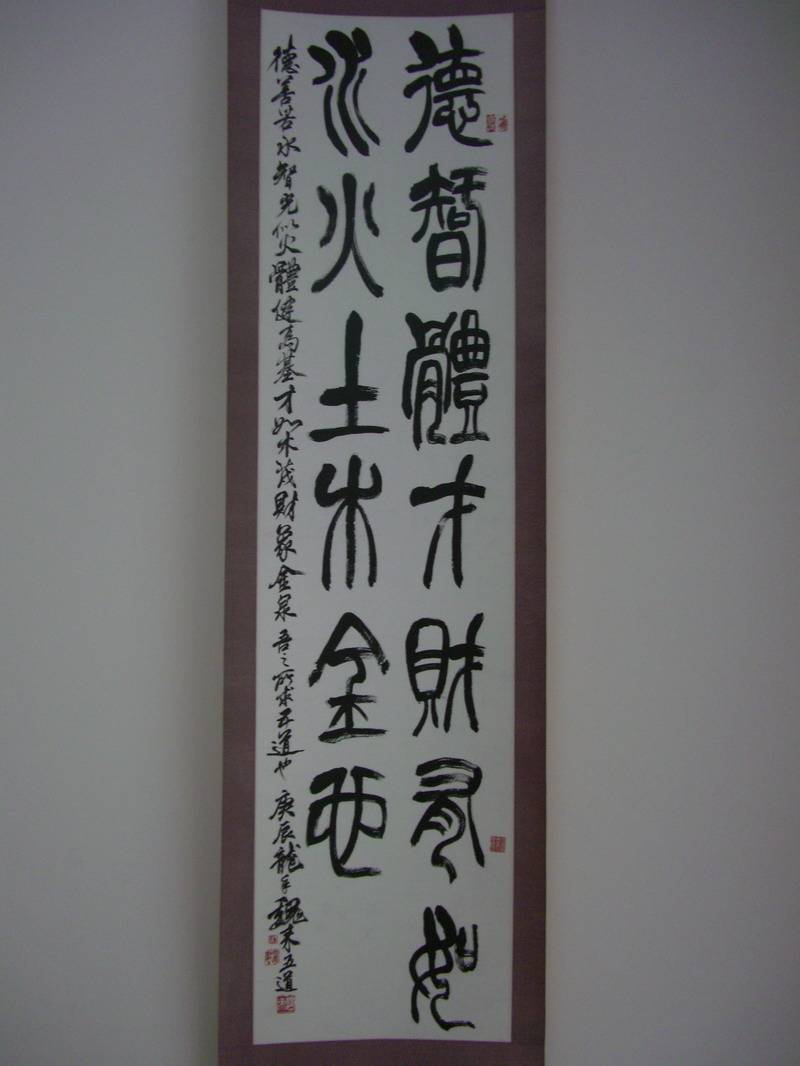 德智體才財有如
水火土木金也
德善若水智光似火體健為基才如木茂財象金泉吾之所求五道也 庚辰龍年魏來五道